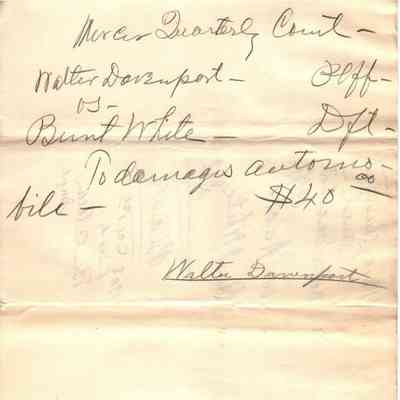 Mercer Quarterly Court -
Walter Davenport - Plff -
vs -
Burnt White - Dft -
To damages automo-
bile - $40 00
Walter Davenport